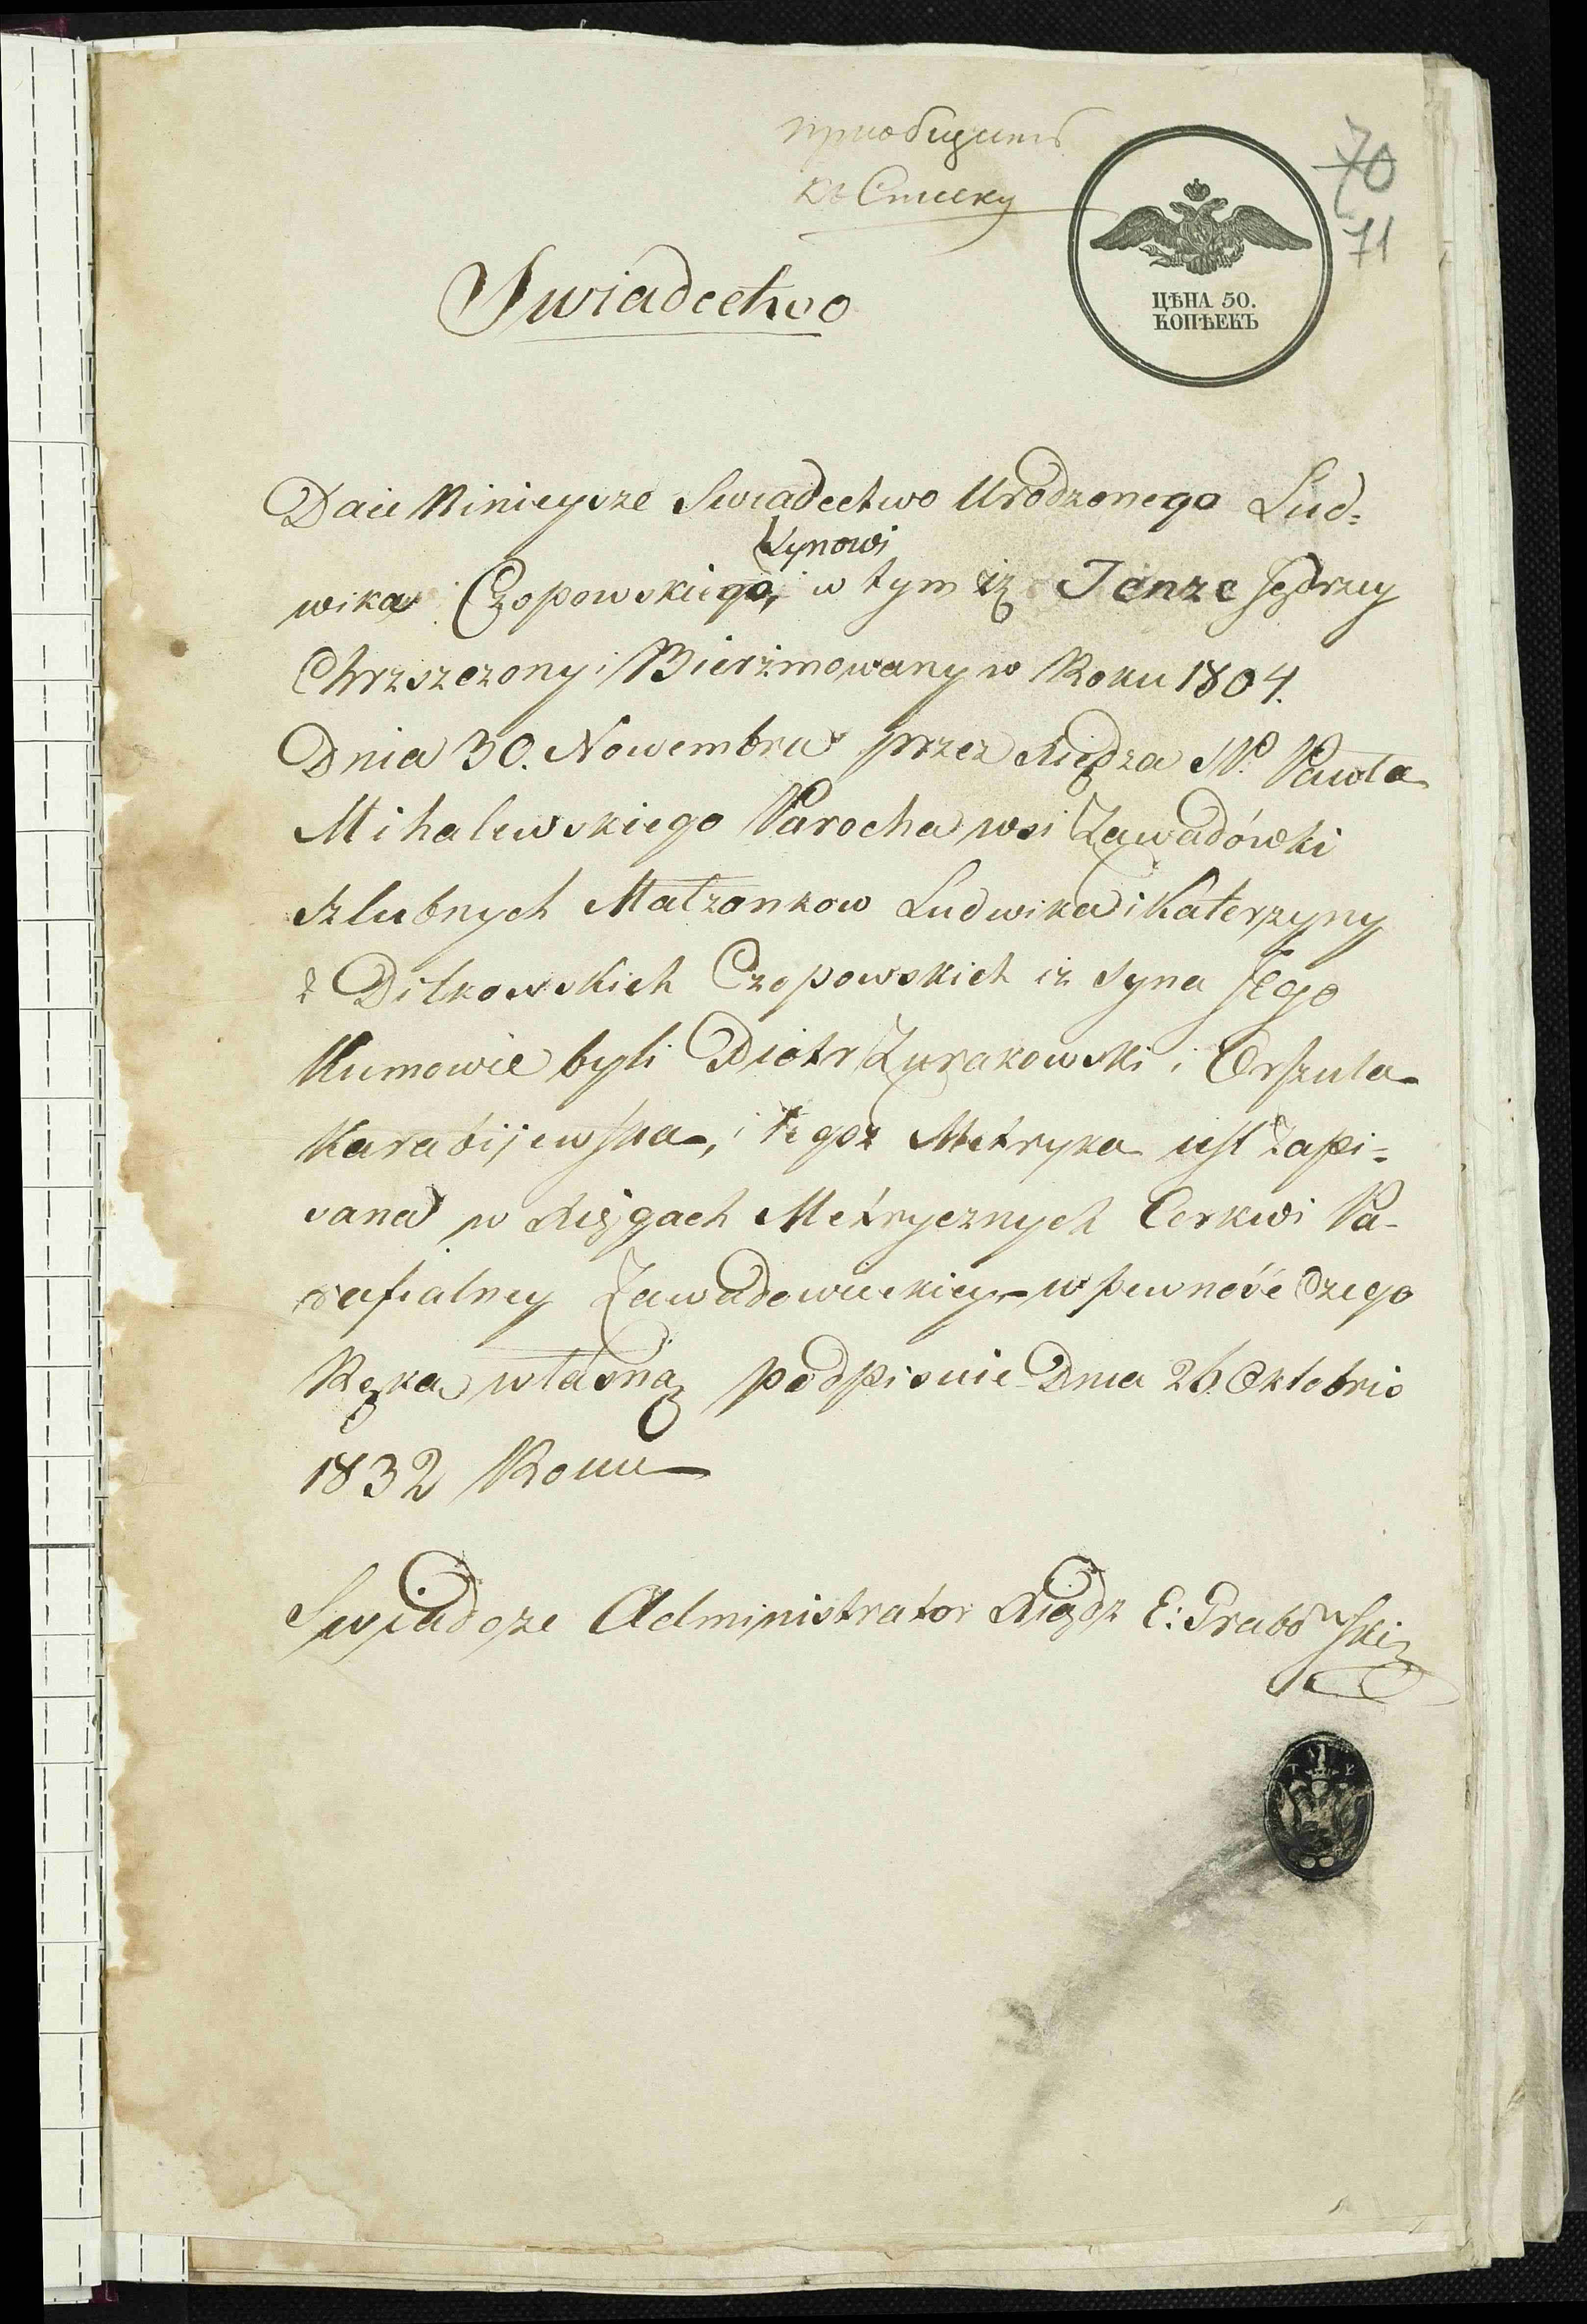 приобщить
къ Списку
70
71
ЦѢНА 50.
КОПѢЕКЪ
Swiadectwo
Daię Ninieysze Swiadectwo Urodzonego Lud=
Synowi
wika Czopowskiego, w tym iż Jenże Jędrzey
Chrzszczony i Bierżmowany w Roku 1804.
Dnia 30. Nowembra przez Xiędza Pawła
Mihalewskiego Parocha wsi Zawadówki
szlubnych Małżonkow Ludwika i Katerzyny
z Dilkowskich Czopowskich iż syna Jego
Kumowie byli Piotr Żurakowski i Orszula
Karabijewska, i tegoż Metryka iest Zapi=
sana w Xięgach Metrycznych Cerkwi Pa-
rafialney Zawadowieckiey w pewność czego
Ręką własną podpisuie Dnia 26 Oktobris
1832 Roku
Swiadcze Administrator Xiądz E: Grabowski